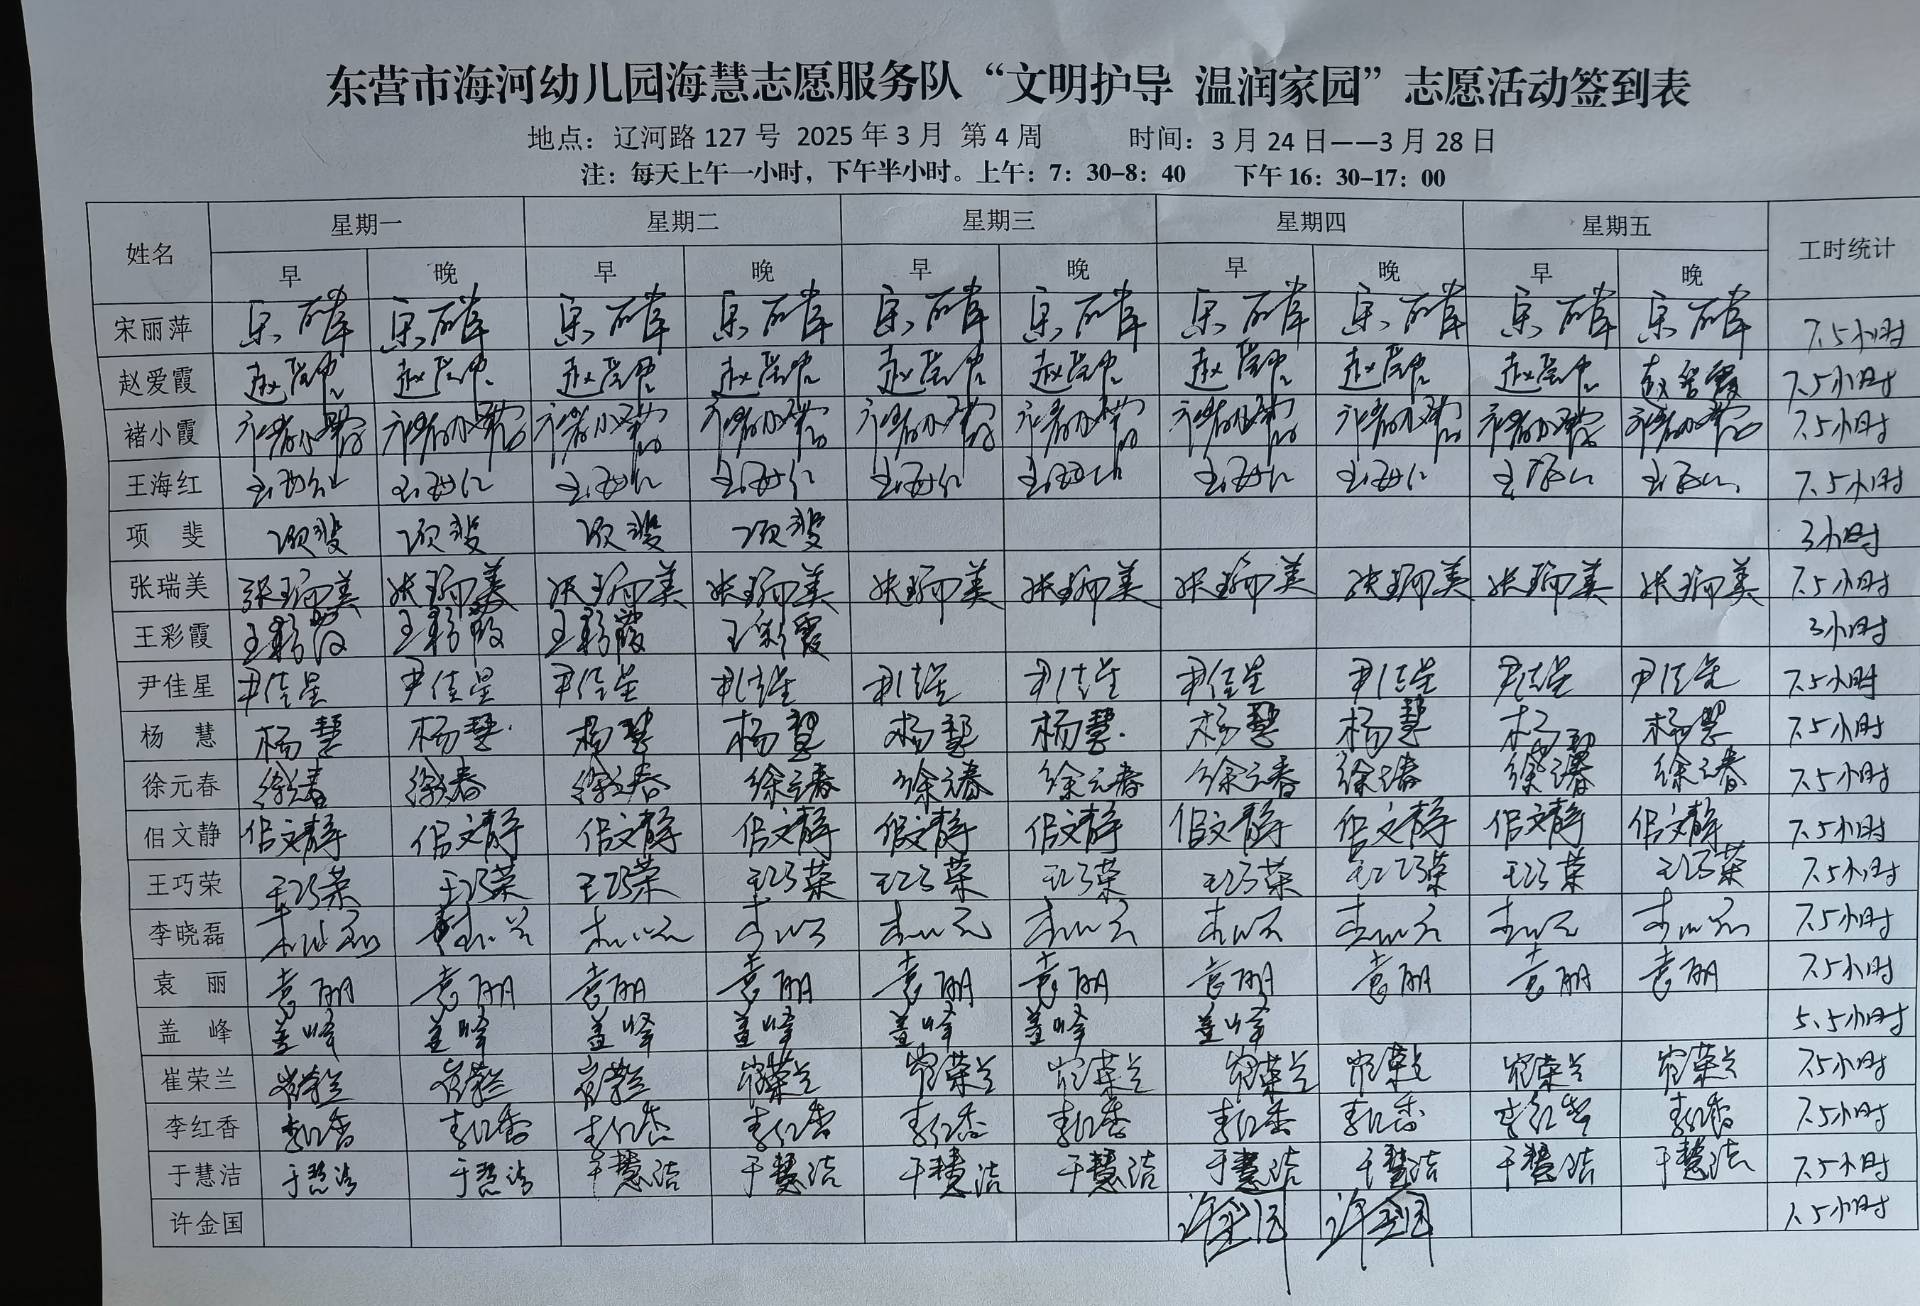 东营市海河幼儿园海慧志愿服务队“文明护导 温润家园”志愿活动签到表
地点：辽河路 127 号 2025 年 3 月 第 4 周 时间：3 月 24 日——3 月 28 日
注：每天上午一小时，下午半小时。上午：7：30-8：40 下午 16：30-17：00
姓名 星期一 星期二 星期三 星期四 星期五 工时统计
早 晚 早 晚 早 晚 早 晚 早 晚
宋丽萍 宋丽萍 宋丽萍 宋丽萍 宋丽萍 宋丽萍 宋丽萍 宋丽萍 宋丽萍 宋丽萍 宋丽萍 7.5小时
赵爱霞 赵爱霞 赵爱霞 赵爱霞 赵爱霞 赵爱霞 赵爱霞 赵爱霞 赵爱霞 赵爱霞 赵爱霞 7.5小时
褚小霞 褚小霞 褚小霞 褚小霞 褚小霞 褚小霞 褚小霞 褚小霞 褚小霞 褚小霞 褚小霞 7.5小时
王海红 王海红 王海红 王海红 王海红 王海红 王海红 王海红 王海红 王海红 王海红 7.5小时
项 斐 项斐 项斐 项斐 项斐 3小时
张瑞美 张瑞美 张瑞美 张瑞美 张瑞美 张瑞美 张瑞美 张瑞美 张瑞美 张瑞美 张瑞美 7.5小时
王彩霞 王彩霞 王彩霞 王彩霞 王彩霞 3小时
尹佳星 尹佳星 尹佳星 尹佳星 尹佳星 尹佳星 尹佳星 尹佳星 尹佳星 尹佳星 尹佳星 7.5小时
杨 慧 杨慧 杨慧 杨慧 杨慧 杨慧 杨慧 杨慧 杨慧 杨慧 杨慧 7.5小时
徐元春 徐元春 徐元春 徐元春 徐元春 徐元春 徐元春 徐元春 徐元春 徐元春 徐元春 7.5小时
佀文静 佀文静 佀文静 佀文静 佀文静 佀文静 佀文静 佀文静 佀文静 佀文静 佀文静 7.5小时
王巧荣 王巧荣 王巧荣 王巧荣 王巧荣 王巧荣 王巧荣 王巧荣 王巧荣 王巧荣 王巧荣 7.5小时
李晓磊 李晓磊 李晓磊 李晓磊 李晓磊 李晓磊 李晓磊 李晓磊 李晓磊 李晓磊 李晓磊 7.5小时
袁 丽 袁丽 袁丽 袁丽 袁丽 袁丽 袁丽 袁丽 袁丽 袁丽 袁丽 7.5小时
盖 峰 盖峰 盖峰 盖峰 盖峰 盖峰 盖峰 盖峰 5.5小时
崔荣兰 崔荣兰 崔荣兰 崔荣兰 崔荣兰 崔荣兰 崔荣兰 崔荣兰 崔荣兰 崔荣兰 崔荣兰 7.5小时
李红香 李红香 李红香 李红香 李红香 李红香 李红香 李红香 李红香 李红香 李红香 7.5小时
于慧洁 于慧洁 于慧洁 于慧洁 于慧洁 于慧洁 于慧洁 于慧洁 于慧洁 于慧洁 于慧洁 7.5小时
许金国 许金国 许金国 1.5小时